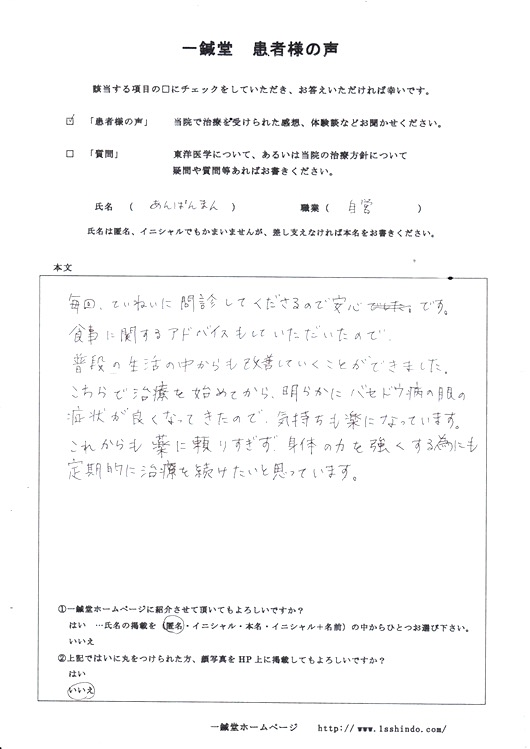 一鍼堂 患者様の声
該当する項目の□にチェックをしていただき、お答えいただければ幸いです。
☑ 「患者様の声」 当院で治療を受けられた感想、体験談などお聞かせください。
□ 「質問」 東洋医学について、あるいは当院の治療方針について
疑問や質問等あればお書きください。
氏名 ( あんぱんまん ) 職業 ( 自営 )
氏名は匿名、イニシャルでもかまいませんが、差し支えなければ本名をお書きください。
本文
毎回、ていねいに問診してくださるので安心でした。です。
食事に関するアドバイスもしていただいたので、
普段の生活の中からも改善していくことができました。
こちらで治療を始めてから、明らかにバセドウ病の眼の
症状が良くなってきたので、気持ちも楽になっています。
これからも薬に頼りすぎず、身体の力を強くする為にも
定期的に治療を続けたいと思っています。
①一鍼堂ホームページに紹介させて頂いてもよろしいですか?
はい …氏名の掲載を(匿名・イニシャル・本名・イニシャル+名前)の中からひとつお選び下さい。
いいえ
②上記ではいに丸をつけられた方、顔写真をHP上に掲載してもよろしいですか?
はい
いいえ
一鍼堂ホームページ http://www.1sshindo.com/